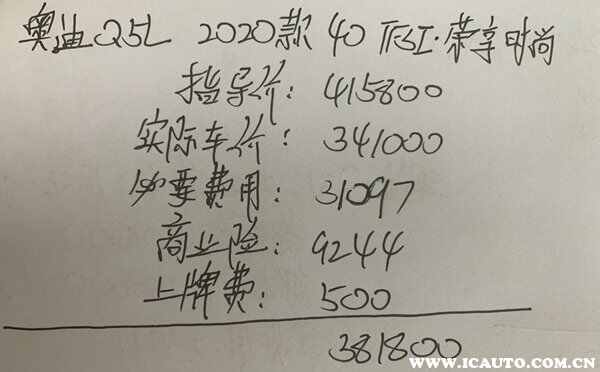 奥迪Q5L 2020款 40 TFSI·荣享时尚
指导价: 415800
实际车价: 341000
必要费用: 31097
商业险: 9244
上牌费: 500
381800
WWW.ICAUTO.COM.CN